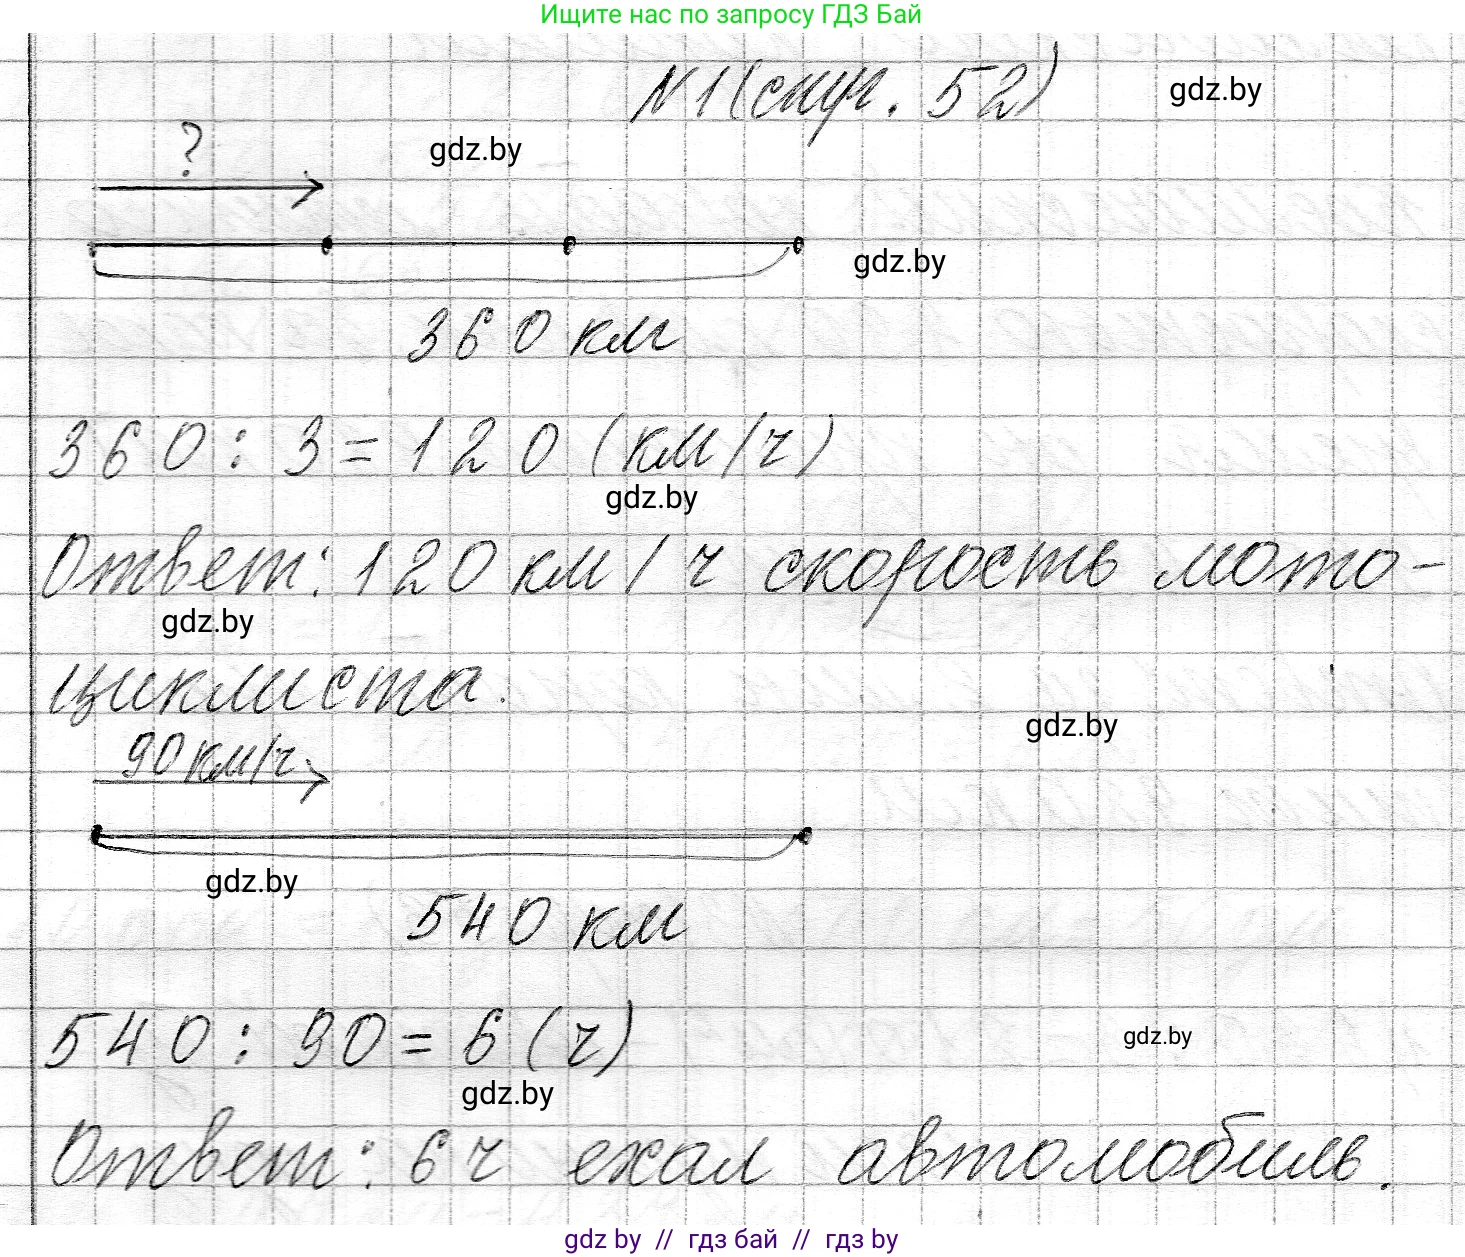 Ищите нас по запросу ГДЗ Бай
№1 (стр. 52)
gdz.by
?
gdz.by
gdz.by
360 км
360 : 3 = 120 (км/ч)
gdz.by
Ответ: 120 км/ч скорость мото-
gdz.by
циклиста.
gdz.by
90 км/ч
gdz.by
540 км
540 : 90 = 6 (ч)
gdz.by
gdz.by
Ответ: 6 ч ехал автомобиль.
gdz by // гдз бай // гдз by